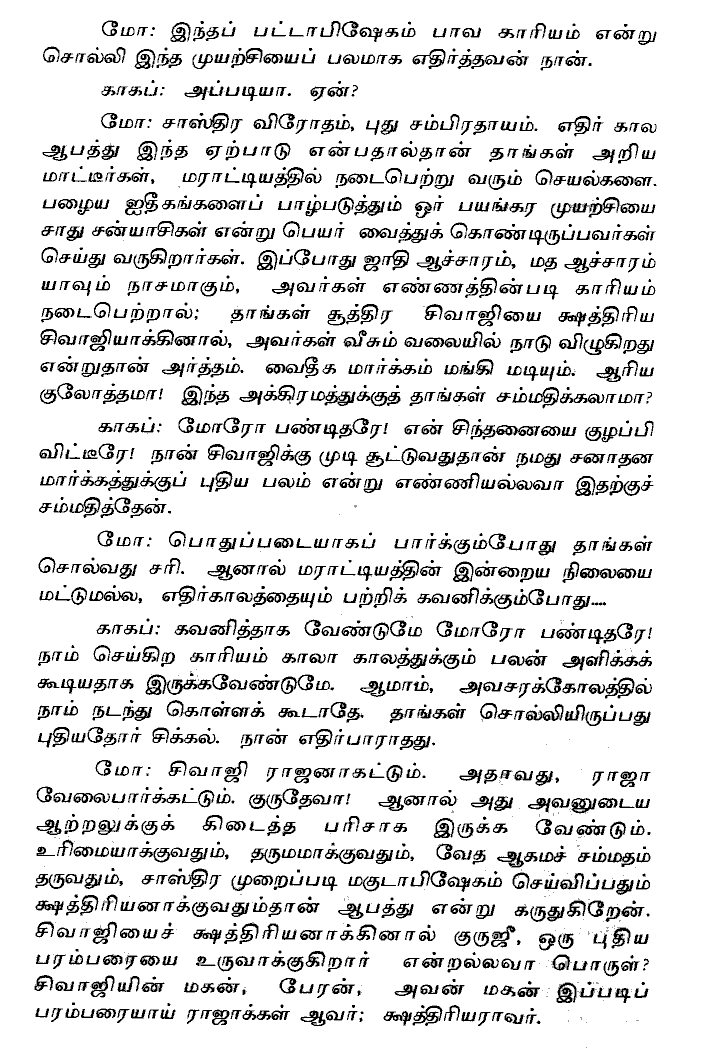 மோ: இந்தப் பட்டாபிஷேகம் பாவ காரியம் என்று
சொல்லி இந்த முயற்சியைப் பலமாக எதிர்த்தவன் நான்.
காகப்: அப்படியா. ஏன்?
மோ: சாஸ்திர விரோதம், புது சம்பிரதாயம். எதிர் கால
ஆபத்து இந்த ஏற்பாடு என்பதால்தான் தாங்கள் அறிய
மாட்டீர்கள், மராட்டியத்தில் நடைபெற்று வரும் செயல்களை.
பழைய ஐதீகங்களைப் பாழ்படுத்தும் ஓர் பயங்கர முயற்சியை
சாது சன்யாசிகள் என்று பெயர் வைத்துக் கொண்டிருப்பவர்கள்
செய்து வருகிறார்கள். இப்போது ஜாதி ஆச்சாரம், மத ஆச்சாரம்
யாவும் நாசமாகும், அவர்கள் எண்ணத்தின்படி காரியம்
நடைபெற்றால்; தாங்கள் சூத்திர சிவாஜியை க்ஷத்திரிய
சிவாஜியாக்கினால், அவர்கள் வீசும் வலையில் நாடு விழுகிறது
என்றுதான் அர்த்தம். வைதீக மார்க்கம் மங்கி மடியும். ஆரிய
குலோத்தமா! இந்த அக்கிரமத்துக்குத் தாங்கள் சம்மதிக்கலாமா?
காகப்: மோரோ பண்டிதரே! என் சிந்தனையை குழப்பி
விட்டீரே! நான் சிவாஜிக்கு முடி சூட்டுவதுதான் நமது சனாதன
மார்க்கத்துக்குப் புதிய பலம் என்று எண்ணியல்லவா இதற்குச்
சம்மதித்தேன்.
மோ: பொதுப்படையாகப் பார்க்கும்போது தாங்கள்
சொல்வது சரி. ஆனால் மராட்டியத்தின் இன்றைய நிலையை
மட்டுமல்ல, எதிர்காலத்தையும் பற்றிக் கவனிக்கும்போது....
காகப்: கவனித்தாக வேண்டுமே மோரோ பண்டிதரே!
நாம் செய்கிற காரியம் காலா காலத்துக்கும் பலன் அளிக்கக்
கூடியதாக இருக்கவேண்டுமே. ஆமாம், அவசரக்கோலத்தில்
நாம் நடந்து கொள்ளக் கூடாதே. தாங்கள் சொல்லியிருப்பது
புதியதோர் சிக்கல். நான் எதிர்பாராதது.
மோ: சிவாஜி ராஜனாகட்டும். அதாவது, ராஜா
வேலைபார்க்கட்டும். குருதேவா! ஆனால் அது அவனுடைய
ஆற்றலுக்குக் கிடைத்த பரிசாக இருக்க வேண்டும்.
உரிமையாக்குவதும், தருமமாக்குவதும், வேத ஆகமச் சம்மதம்
தருவதும், சாஸ்திர முறைப்படி மகுடாபிஷேகம் செய்விப்பதும்
க்ஷத்திரியனாக்குவதும்தான் ஆபத்து என்று கருதுகிறேன்.
சிவாஜியைச் க்ஷத்திரியனாக்கினால் குருஜீ, ஒரு புதிய
பரம்பரையை உருவாக்குகிறார் என்றல்லவா பொருள்?
சிவாஜியின் மகன், பேரன், அவன் மகன் இப்படிப்
பரம்பரையாய் ராஜாக்கள் ஆவர்; க்ஷத்திரியராவர்.